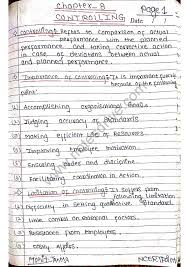 Chapter-8 Page 1
CONTROLLING Date
Controlling: Refers to Comparison of Actual
performance with the planned
performance and taking corrective action
in case of deviations between actual
and planned performance.
Importance of Controlling: It is important
because of the following
(1) Accomplishing organisational Goals
(2) Judging accuracy of standards
(3) Making efficient use of Resources
(4) Improving employee motivation
(5) Ensuring order and discipline
(6) Facilitating coordination in Action.
Limitation of Controlling: It suffers from
following limitation
(1) Difficulty in setting quantitative Standard.
(2) Little control on external factors.
(3) Resistance from Employees.
(4) Costly affair.